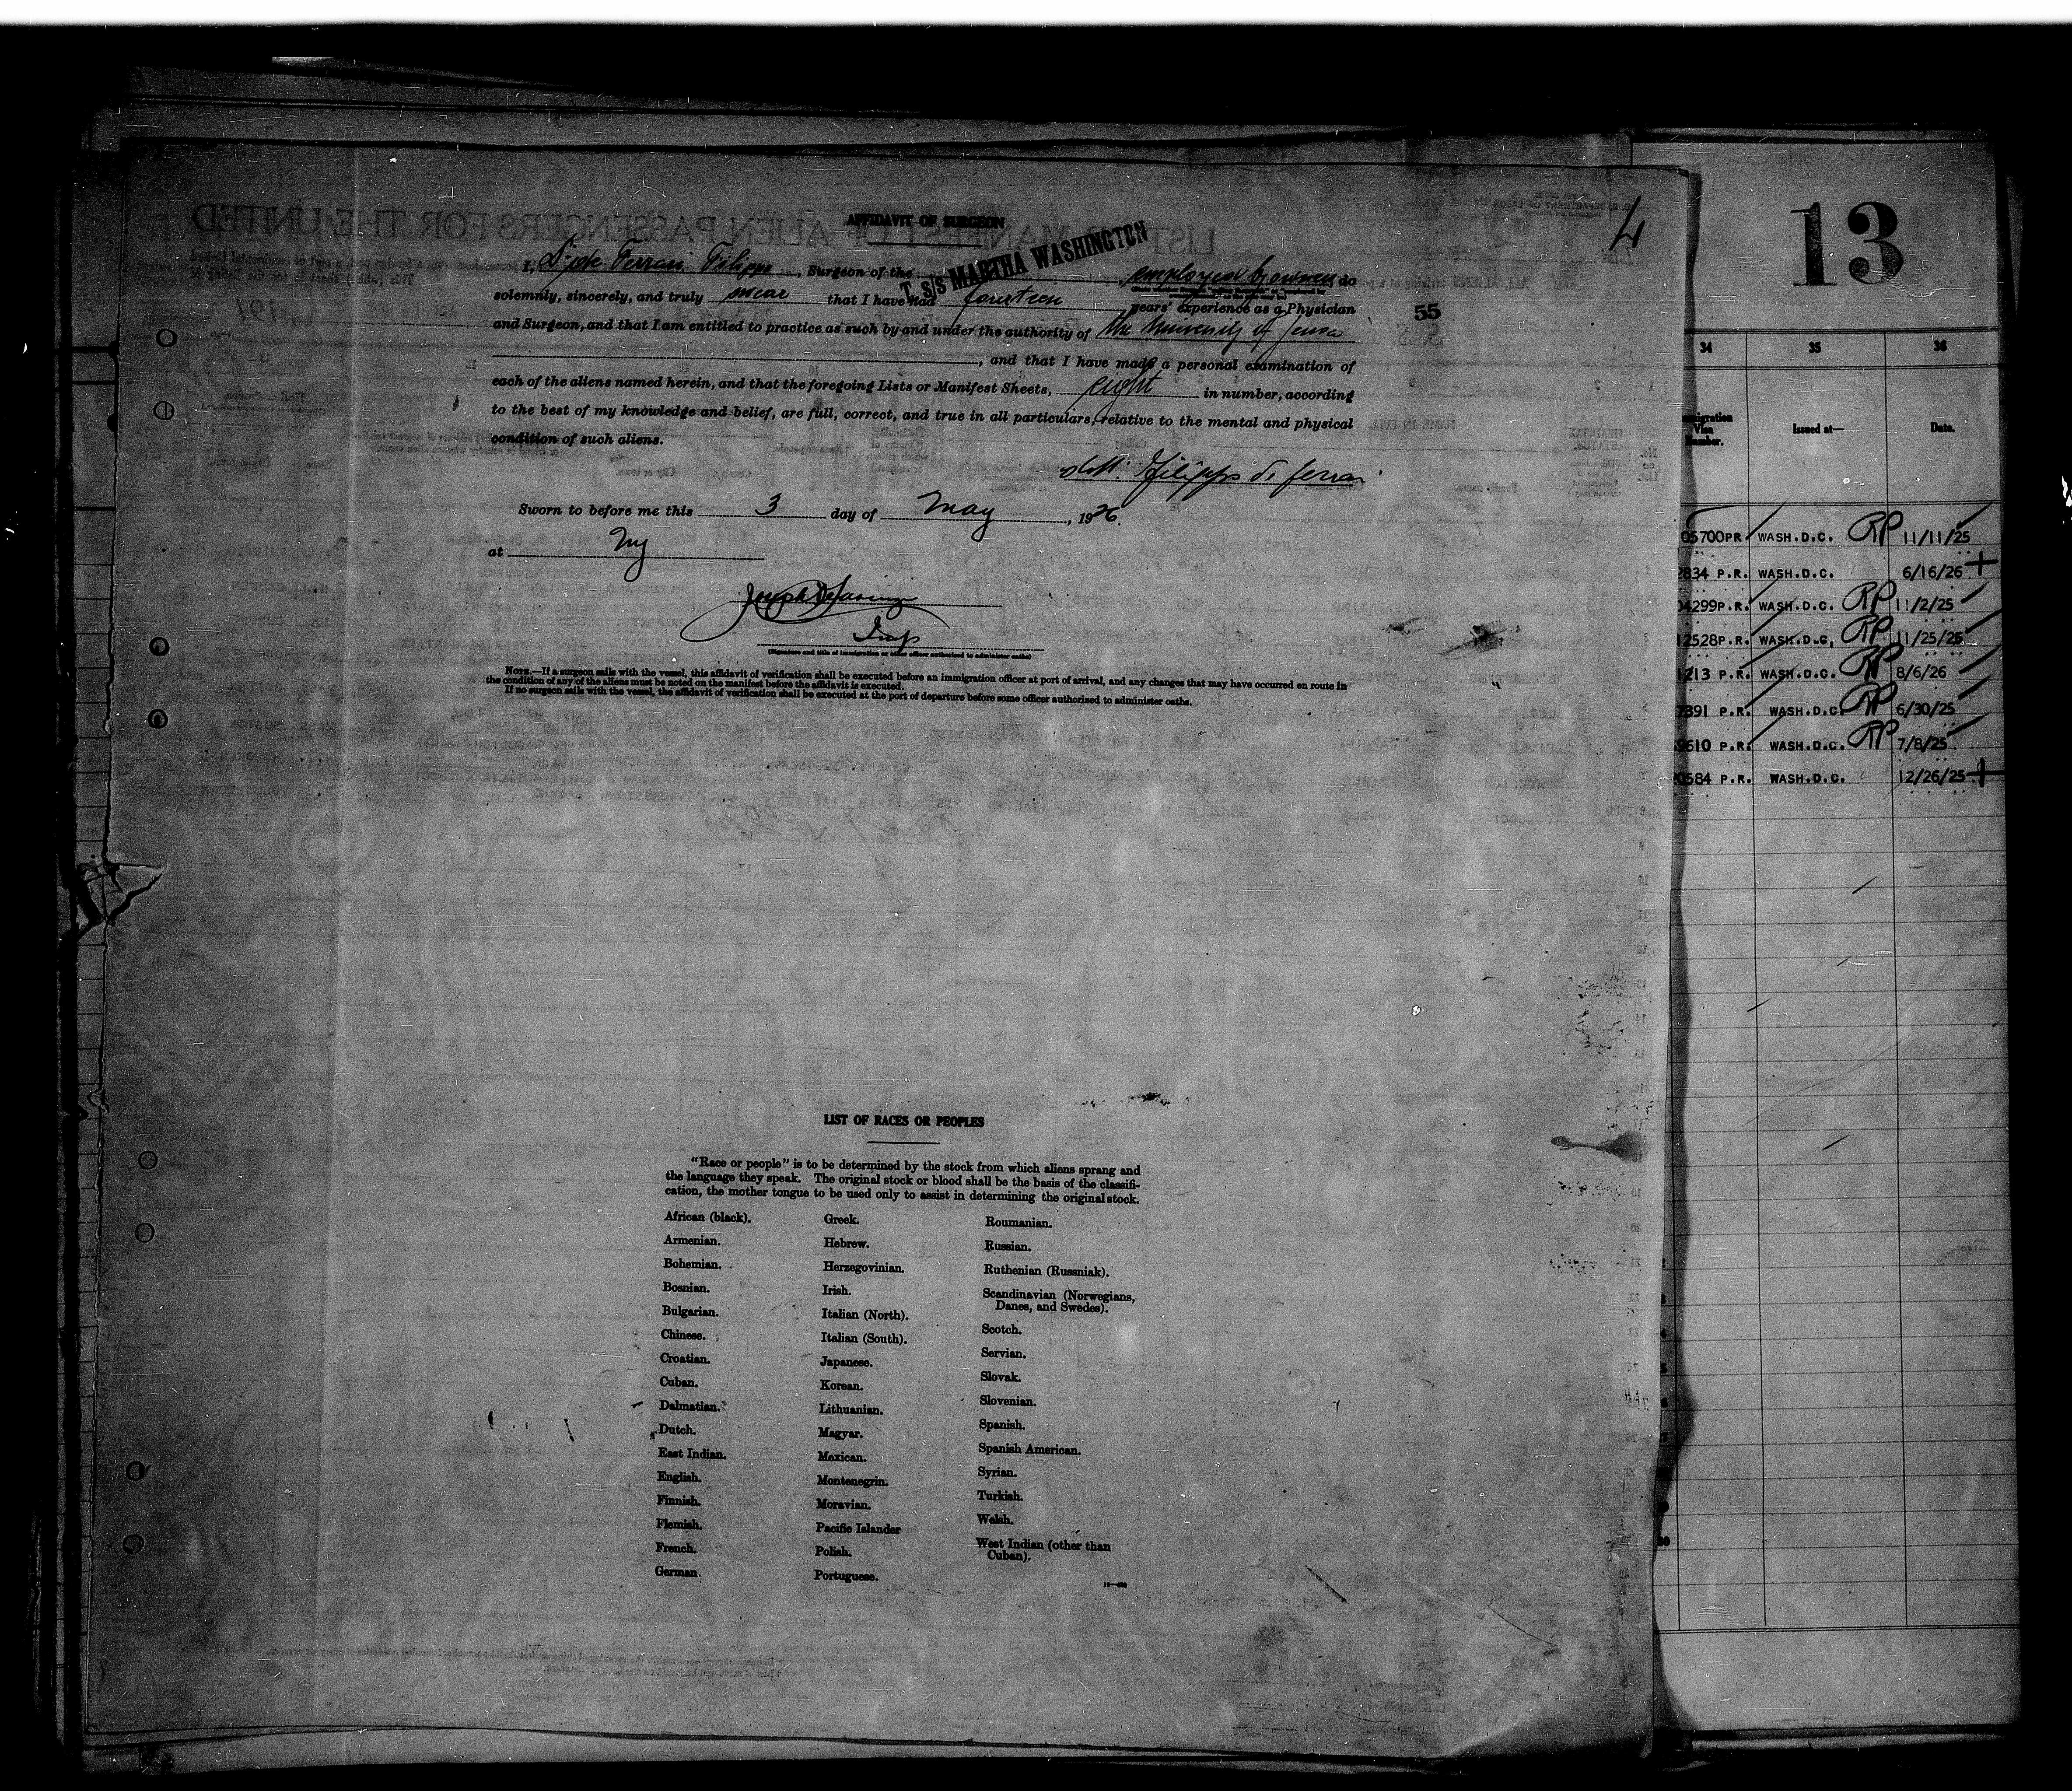 13
4
AFFIDAVIT OF SURGEON
I, D. de Ferrari Filippo, Surgeon of the T. S/S MARTHA WASHINGTON, employed by owners, do
solemnly, sincerely, and truly swear that I have had fourteen years' experience as a Physician
55
and Surgeon, and that I am entitled to practice as such by and under the authority of the University of Genoa
, and that I have made a personal examination of
each of the aliens named herein, and that the foregoing Lists or Manifest Sheets, eight in number, according
to the best of my knowledge and belief, are full, correct, and true in all particulars, relative to the mental and physical
condition of such aliens.
Filippo de Ferrari
Sworn to before me this 3 day of May, 1926.
at Ny
Insp
(Signature and title of immigration or other officer authorized to administer oaths)
NOTE.—If a surgeon sails with the vessel, this affidavit of verification shall be executed before an immigration officer at port of arrival, and any changes that may have occurred en route in
the condition of any of the aliens must be noted on the manifest before the affidavit is executed.
If no surgeon sails with the vessel, the affidavit of verification shall be executed at the port of departure before some officer authorized to administer oaths.
34 35 36
Visa Issued at— Date.
05700PR WASH.D.C. RP 11/11/25
2834 P.R. WASH.D.C. 6/16/26 +
04299P.R. WASH.D.C. RP 11/2/25
12528P.R. WASH.D.C. RP 11/25/25
1213 P.R. WASH.D.C. RP 8/6/26
7391 P.R. WASH.D.C. RP 6/30/25
9610 P.R. WASH.D.C. RP 7/8/25
0584 P.R. WASH.D.C. 12/26/25 +
LIST OF RACES OR PEOPLES
"Race or people" is to be determined by the stock from which aliens sprang and
the language they speak. The original stock or blood shall be the basis of the classifi-
cation, the mother tongue to be used only to assist in determining the original stock.
African (black).
Armenian.
Bohemian.
Bosnian.
Bulgarian.
Chinese.
Croatian.
Cuban.
Dalmatian.
Dutch.
East Indian.
English.
Finnish.
Flemish.
French.
German.
Greek.
Hebrew.
Herzegovinian.
Irish.
Italian (North).
Italian (South).
Japanese.
Korean.
Lithuanian.
Magyar.
Mexican.
Montenegrin.
Moravian.
Pacific Islander
Polish.
Portuguese.
Roumanian.
Russian.
Ruthenian (Russniak).
Scandinavian (Norwegians,
Danes, and Swedes).
Scotch.
Servian.
Slovak.
Slovenian.
Spanish.
Spanish American.
Syrian.
Turkish.
Welsh.
West Indian (other than
Cuban).